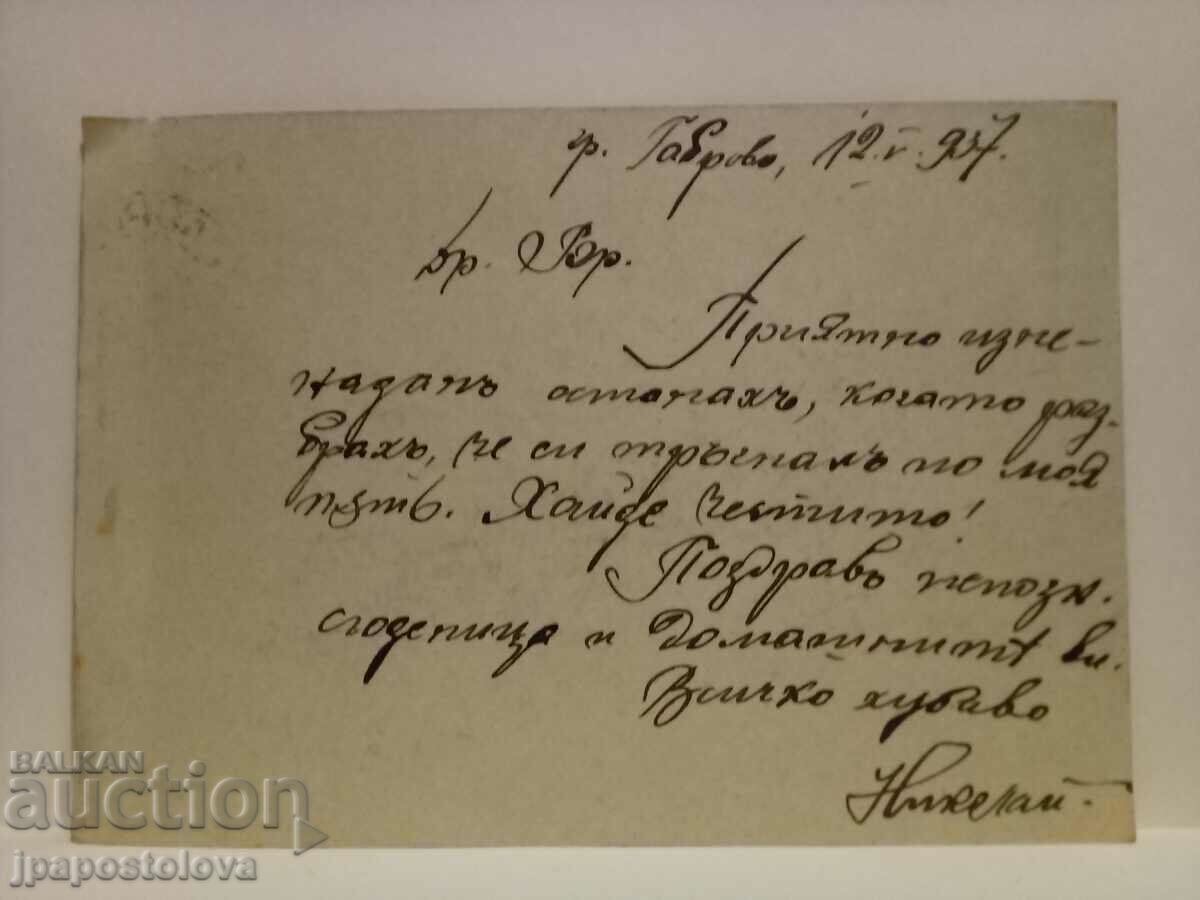 гр. Габрово, 12.V.937.
Др. Вър.
Приятно изне-
наданъ останахъ, когато раз-
брахъ, че си тръгналъ по моя
пѫть. Хайде честито!
Поздравъ непозн.
сгоденица и домашнитѣ ви.
Всичко хубаво
Николай
BALKAN
auction
jpapostolova